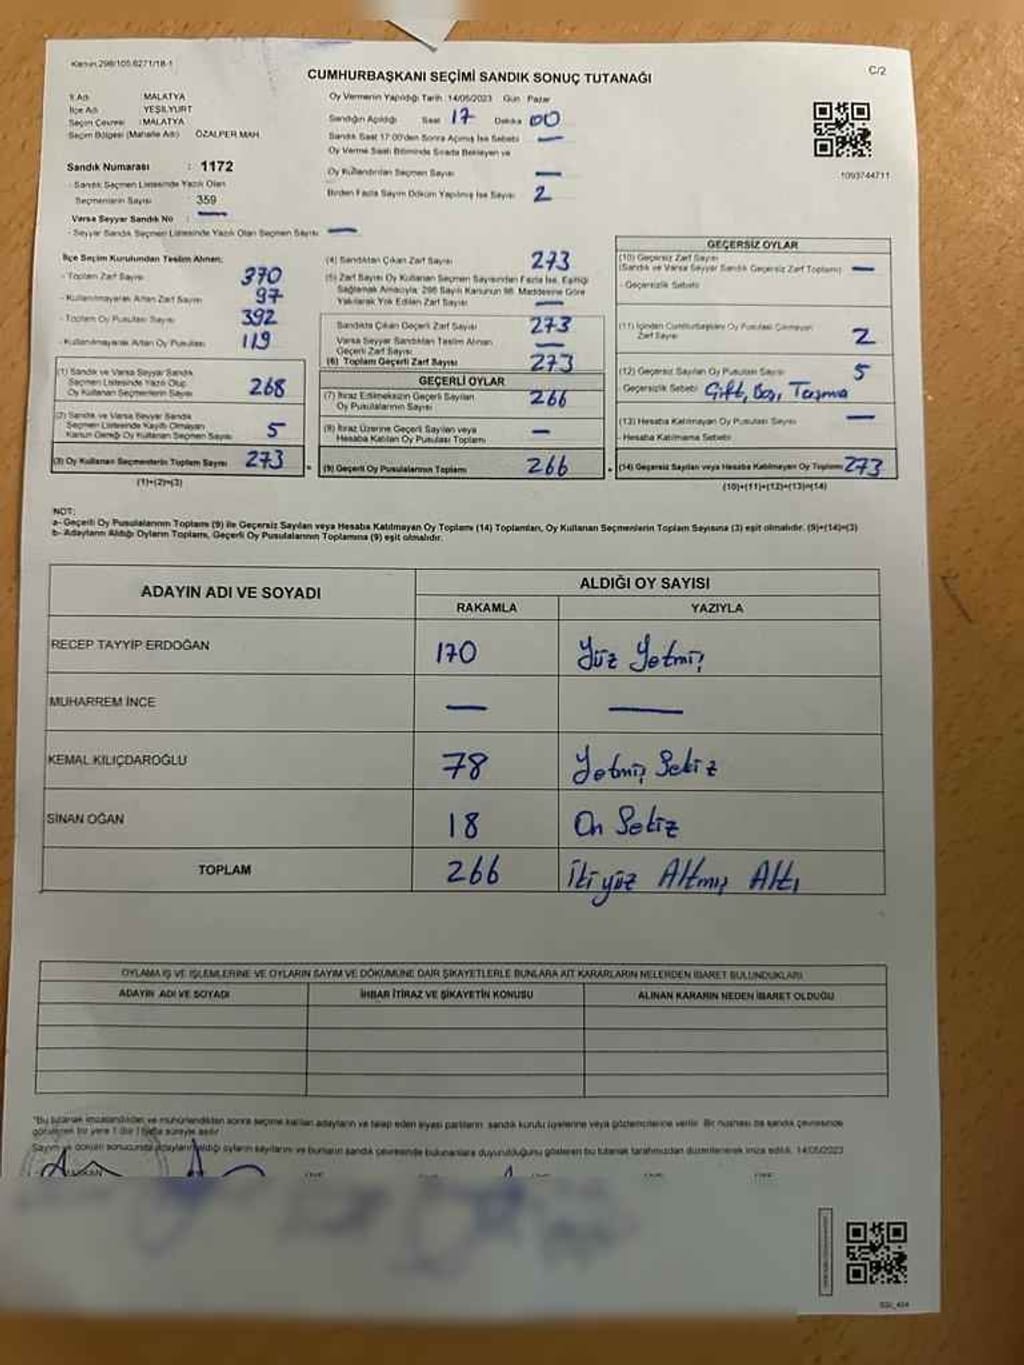 Kanun.298/105.6271/18-1
CUMHURBAŞKANI SEÇİMİ SANDIK SONUÇ TUTANAĞI
C/2
İl Adı MALATYA
İlçe Adı YEŞİLYURT
Seçim Çevresi :MALATYA
Seçim Bölgesi (Mahalle Adı) ÖZALPER MAH.
Sandık Numarası : 1172
- Sandık Seçmen Listesinde Yazılı Olan
Seçmenlerin Sayısı 359
Varsa Seyyar Sandık No : —
- Seyyar Sandık Seçmen Listesinde Yazılı Olan Seçmen Sayısı —
Oy Vermenin Yapıldığı Tarih :14/05/2023 Gün Pazar
Sandığın Açıldığı Saat 17 Dakika 00
Sandık Saat 17:00'den Sonra Açılmış İse Sebebi —
Oy Verme Saati Bitiminde Sırada Bekleyen ve
Oy Kullandırılan Seçmen Sayısı —
Birden Fazla Sayım Döküm Yapılmış İse Sayısı 2
1093744711
İlçe Seçim Kurulundan Teslim Alınan:
- Toplam Zarf Sayısı 370
- Kullanılmayarak Artan Zarf Sayısı 97
- Toplam Oy Pusulası Sayısı 392
- Kullanılmayarak Artan Oy Pusulası 119
(1) Sandık ve Varsa Seyyar Sandık
Seçmen Listesinde Yazılı Olup
Oy Kullanan Seçmenlerin Sayısı 268
(2) Sandık ve Varsa Seyyar Sandık
Seçmen Listesinde Kayıtlı Olmayan
Kanun Gereği Oy Kullanan Seçmen Sayısı 5
(3) Oy Kullanan Seçmenlerin Toplam Sayısı 273
(1)+(2)=(3)
(4) Sandıktan Çıkan Zarf Sayısı 273
(5) Zarf Sayısı Oy Kullanan Seçmen Sayısından Fazla İse, Eşitliği
Sağlamak Amacıyla, 298 Sayılı Kanunun 98. Maddesine Göre
Yakılarak Yok Edilen Zarf Sayısı —
Sandıkta Çıkan Geçerli Zarf Sayısı 273
Varsa Seyyar Sandıktan Teslim Alınan
Geçerli Zarf Sayısı —
(6) Toplam Geçerli Zarf Sayısı 273
GEÇERLİ OYLAR
(7) İtiraz Edilmeksizin Geçerli Sayılan
Oy Pusulalarının Sayısı 266
(8) İtiraz Üzerine Geçerli Sayılan veya
Hesaba Katılan Oy Pusulası Toplamı —
(9) Geçerli Oy Pusulalarının Toplamı 266
GEÇERSİZ OYLAR
(10) Geçersiz Zarf Sayısı
(Sandık ve Varsa Seyyar Sandık Geçersiz Zarf Toplamı) —
- Geçersizlik Sebebi
(11) İçinden Cumhurbaşkanı Oy Pusulası Çıkmayan
Zarf Sayısı 2
(12) Geçersiz Sayılan Oy Pusulası Sayısı 5
- Geçersizlik Sebebi Çift, Boş, Taşma
(13) Hesaba Katılmayan Oy Pusulası Sayısı —
- Hesaba Katılmama Sebebi
(14) Geçersiz Sayılan veya Hesaba Katılmayan Oy Toplamı 273
(10)+(11)+(12)+(13)=(14)
NOT:
a- Geçerli Oy Pusulalarının Toplamı (9) ile Geçersiz Sayılan veya Hesaba Katılmayan Oy Toplamı (14) Toplamları, Oy Kullanan Seçmenlerin Toplam Sayısına (3) eşit olmalıdır. (9)+(14)=(3)
b- Adayların Aldığı Oyların Toplamı, Geçerli Oy Pusulalarının Toplamına (9) eşit olmalıdır.
ADAYIN ADI VE SOYADI
ALDIĞI OY SAYISI
RAKAMLA YAZIYLA
RECEP TAYYİP ERDOĞAN 170 Yüz Yetmiş
MUHARREM İNCE — —
KEMAL KILIÇDAROĞLU 78 Yetmiş Sekiz
SİNAN OĞAN 18 On Sekiz
TOPLAM 266 İki yüz Altmış Altı
OYLAMA İŞ VE İŞLEMLERİNE VE OYLARIN SAYIM VE DÖKÜMÜNE DAİR ŞİKAYETLERLE BUNLARA AİT KARARLARIN NELERDEN İBARET BULUNDUKLARI
ADAYIN ADI VE SOYADI İHBAR İTİRAZ VE ŞİKAYETİN KONUSU ALINAN KARARIN NEDEN İBARET OLDUĞU
"Bu tutanak imzalandıktan ve mühürlendikten sonra seçime katılan adayların ve talep eden siyasi partilerin sandık kurulu üyelerine veya gözlemcilerine verilir. Bir nüshası da sandık çevresinde
görülebilir bir yere 1 (bir) hafta süreyle asılır
Sayım ve döküm sonucunda adayların aldığı oyların sayılarını ve bunların sandık çevresinde bulunanlara duyurulduğunu gösteren bu tutanak tarafımızdan düzenlenerek imza edildi. 14/05/2023